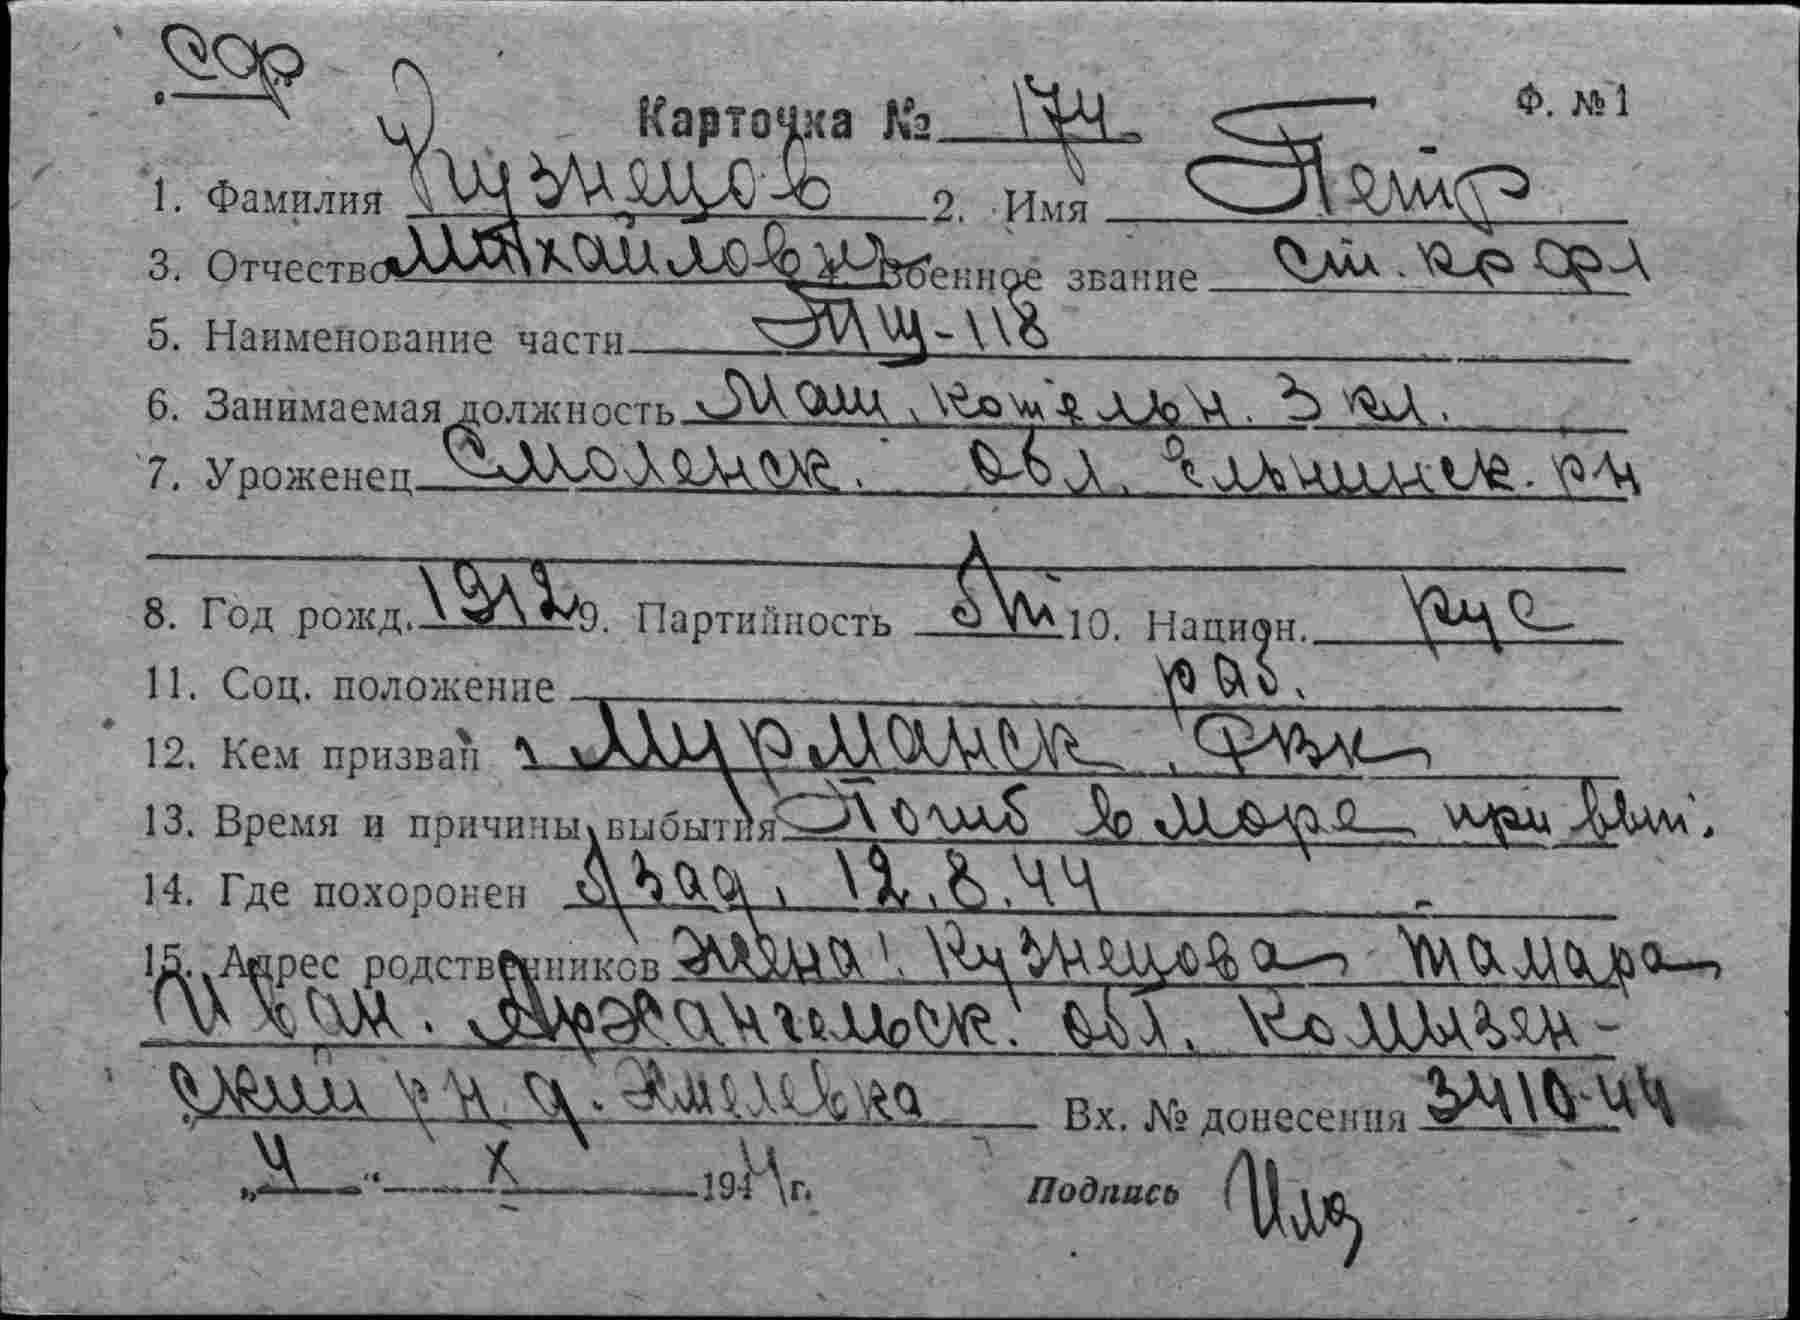 СФ
Карточка № 174 Ф. №1
1. Фамилия Кузнецов 2. Имя Петр
3. Отчество Михайлович 4. Военное звание ст. кр-фл
5. Наименование части ТЩ-118
6. Занимаемая должность Маш. котельн. 3 кл.
7. Уроженец Смоленск. обл. Ельнинск. р-н
8. Год рожд. 1912 9. Партийность б/п 10. Национ. рус
11. Соц. положение раб.
12. Кем призван Мурманск. РВК
13. Время и причины выбытия Погиб в море при вып.
14. Где похоронен б/зад. 12.8.44
15. Адрес родственников жена: Кузнецова Тамара
Иван. Архангельск. обл. Комызен-
ский р-н д. Хмелевка Вх. № донесения 3410-44
„4“ X 1944 г. Подпись